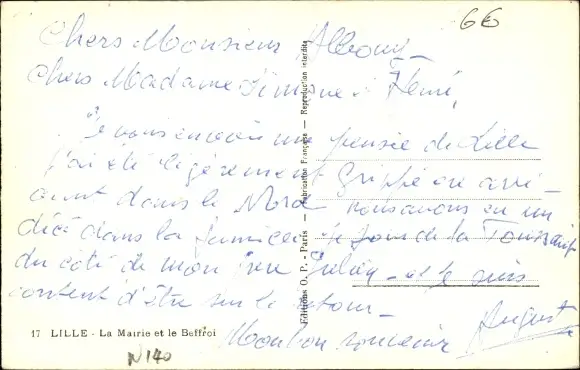 6€
Chers Monsieur
Chers Madame Simone & Henri,
Je vous envoie une pensée de Lille
j'ai été légèrement Grippé en arri-
vant dans le Nord nous avons eu un
décé dans la famille le jour de la Toussaint
du côté de mon frère Julien - et je suis
content d'être sur le retour -
Mon bon souvenir August
17 LILLE - La Mairie et le Beffroi
N 140
Editions O. P. - Paris - Fabrication Française - Reproduction interdite